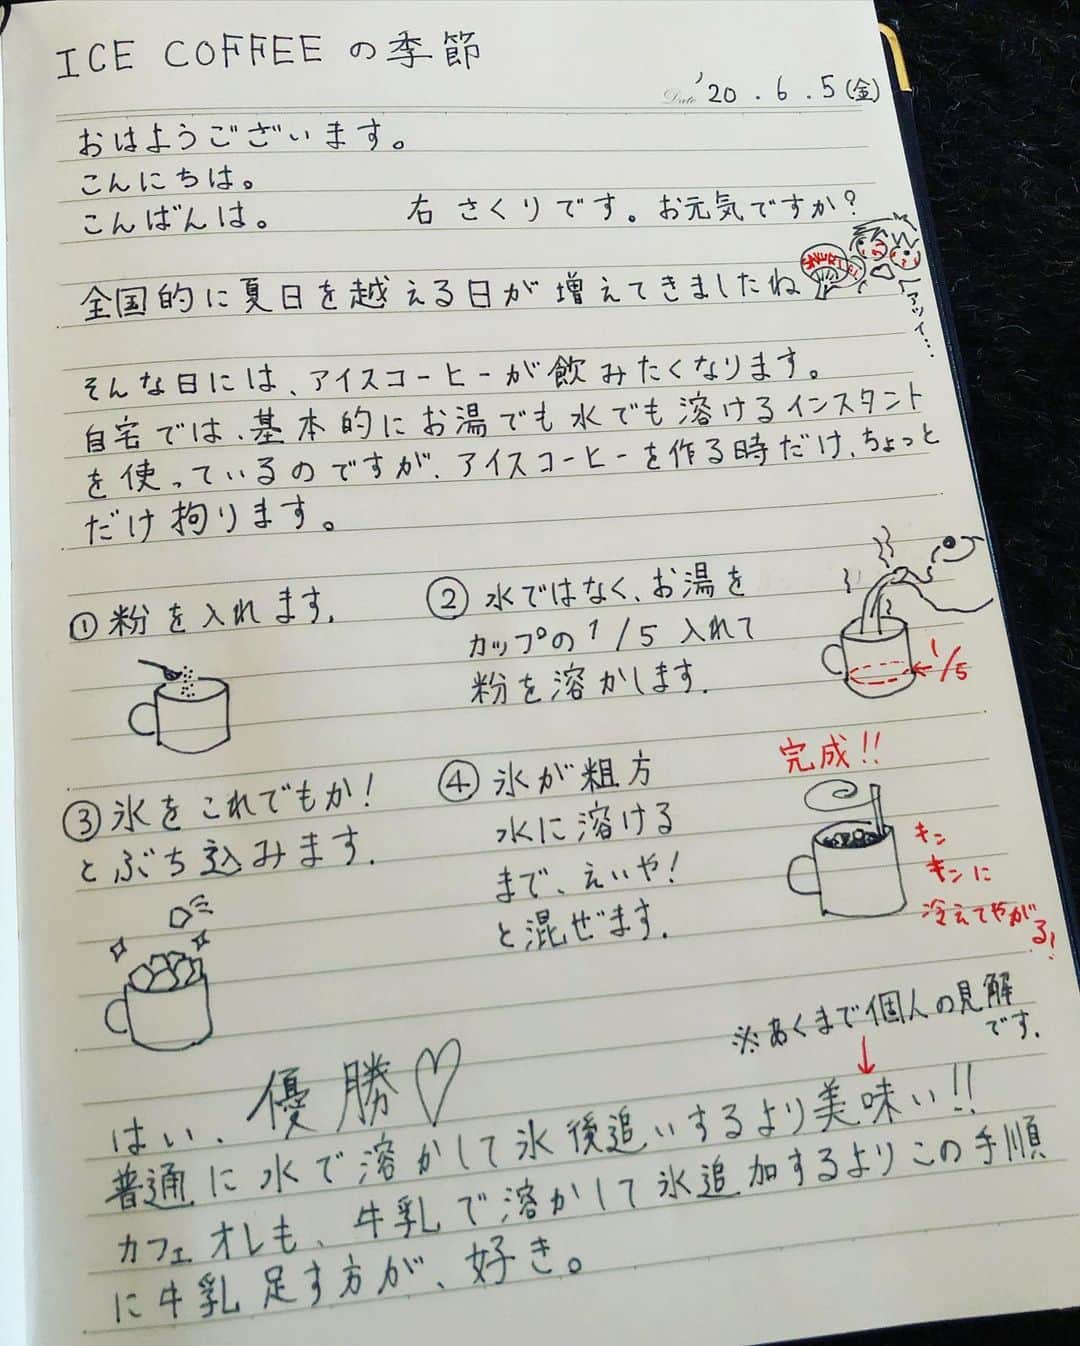 ICE COFFEE の季節
Date '20 . 6 . 5 (金)
おはようございます。
こんにちは。
こんばんは。 右 さくりです。お元気ですか?
全国的に夏日を越える日が増えてきましたね
アツィ...
そんな日には、アイスコーヒーが飲みたくなります。
自宅では、基本的にお湯でも水でも溶けるインスタント
を使っているのですが、アイスコーヒーを作る時だけ、ちょっと
だけ拘ります。
① 粉を入れます。
② 水ではなく、お湯を
カップの1/5 入れて
粉を溶かします。
1/5
③ 氷をこれでもか!
とぶち込みます。
④ 氷が粗方
水に溶ける
まで、えいや!
と混ぜます。
完成!!
キン
キンに
冷えてやがる!
はい、優勝♡
※あくまで個人の見解
です。
↓
普通に水で溶かして氷後追いするより美味い!!
カフェオレも、牛乳で溶かして氷追加するよりこの手順
に牛乳足す方が、好き。